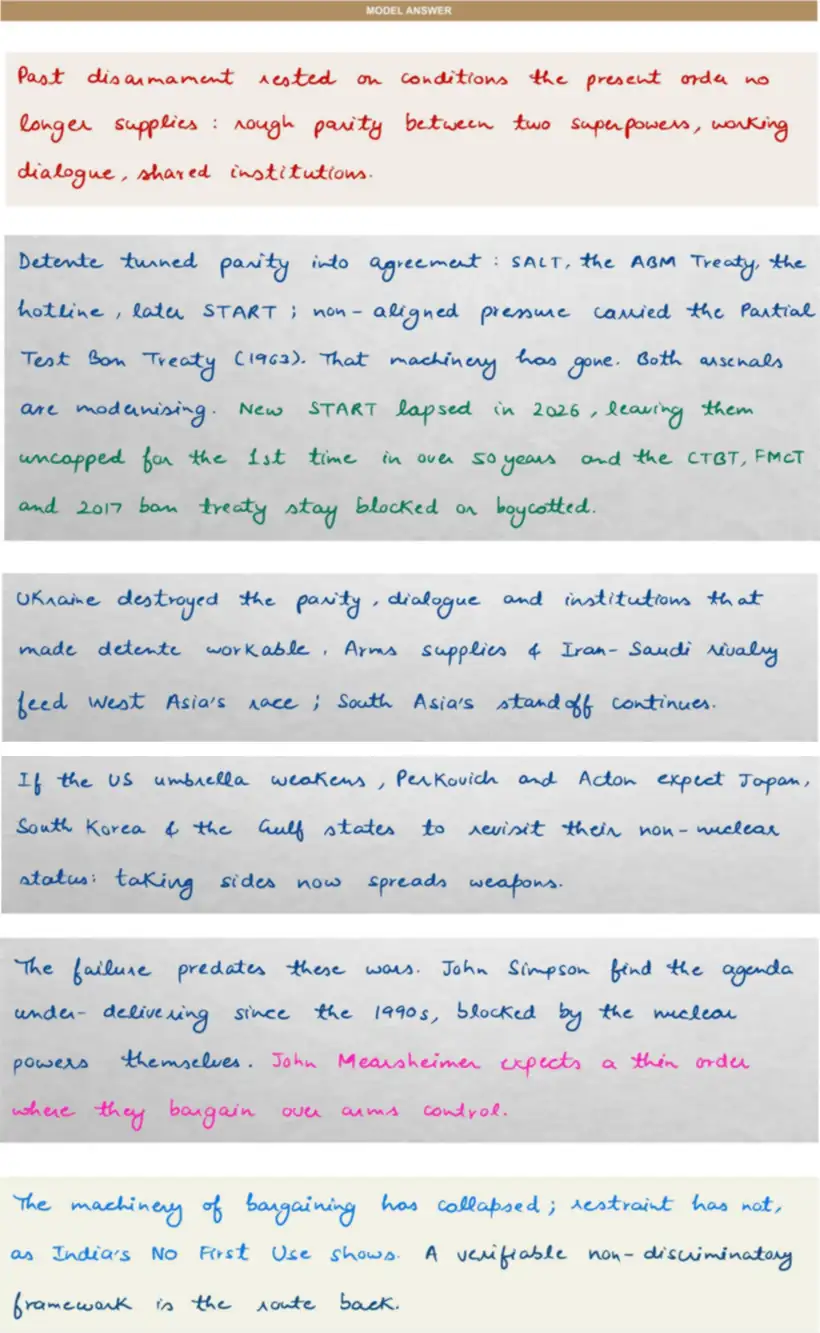 MODEL ANSWER
Past disarmament rested on conditions the present order no
longer supplies : rough parity between two superpowers, working
dialogue, shared institutions.
Detente turned parity into agreement : SALT, the ABM Treaty, the
hotline, later START ; non-aligned pressure carried the Partial
Test Ban Treaty (1963). That machinery has gone. Both arsenals
are modernising. New START lapsed in 2026, leaving them
uncapped for the 1st time in over 50 years and the CTBT, FMCT
and 2017 ban treaty stay blocked or boycotted.
Ukraine destroyed the parity, dialogue and institutions that
made detente workable. Arms supplies & Iran-Saudi rivalry
feed West Asia's race ; South Asia's standoff continues.
If the US umbrella weakens, Perkovich and Acton expect Japan,
South Korea & the Gulf states to revisit their non-nuclear
status: taking sides now spreads weapons.
The failure predates these wars. John Simpson find the agenda
under-delivering since the 1990s, blocked by the nuclear
powers themselves. John Mearsheimer expects a thin order
where they bargain over arms control.
The machinery of bargaining has collapsed ; restraint has not,
as India's No First Use shows. A verifiable non-discriminatory
framework is the route back.